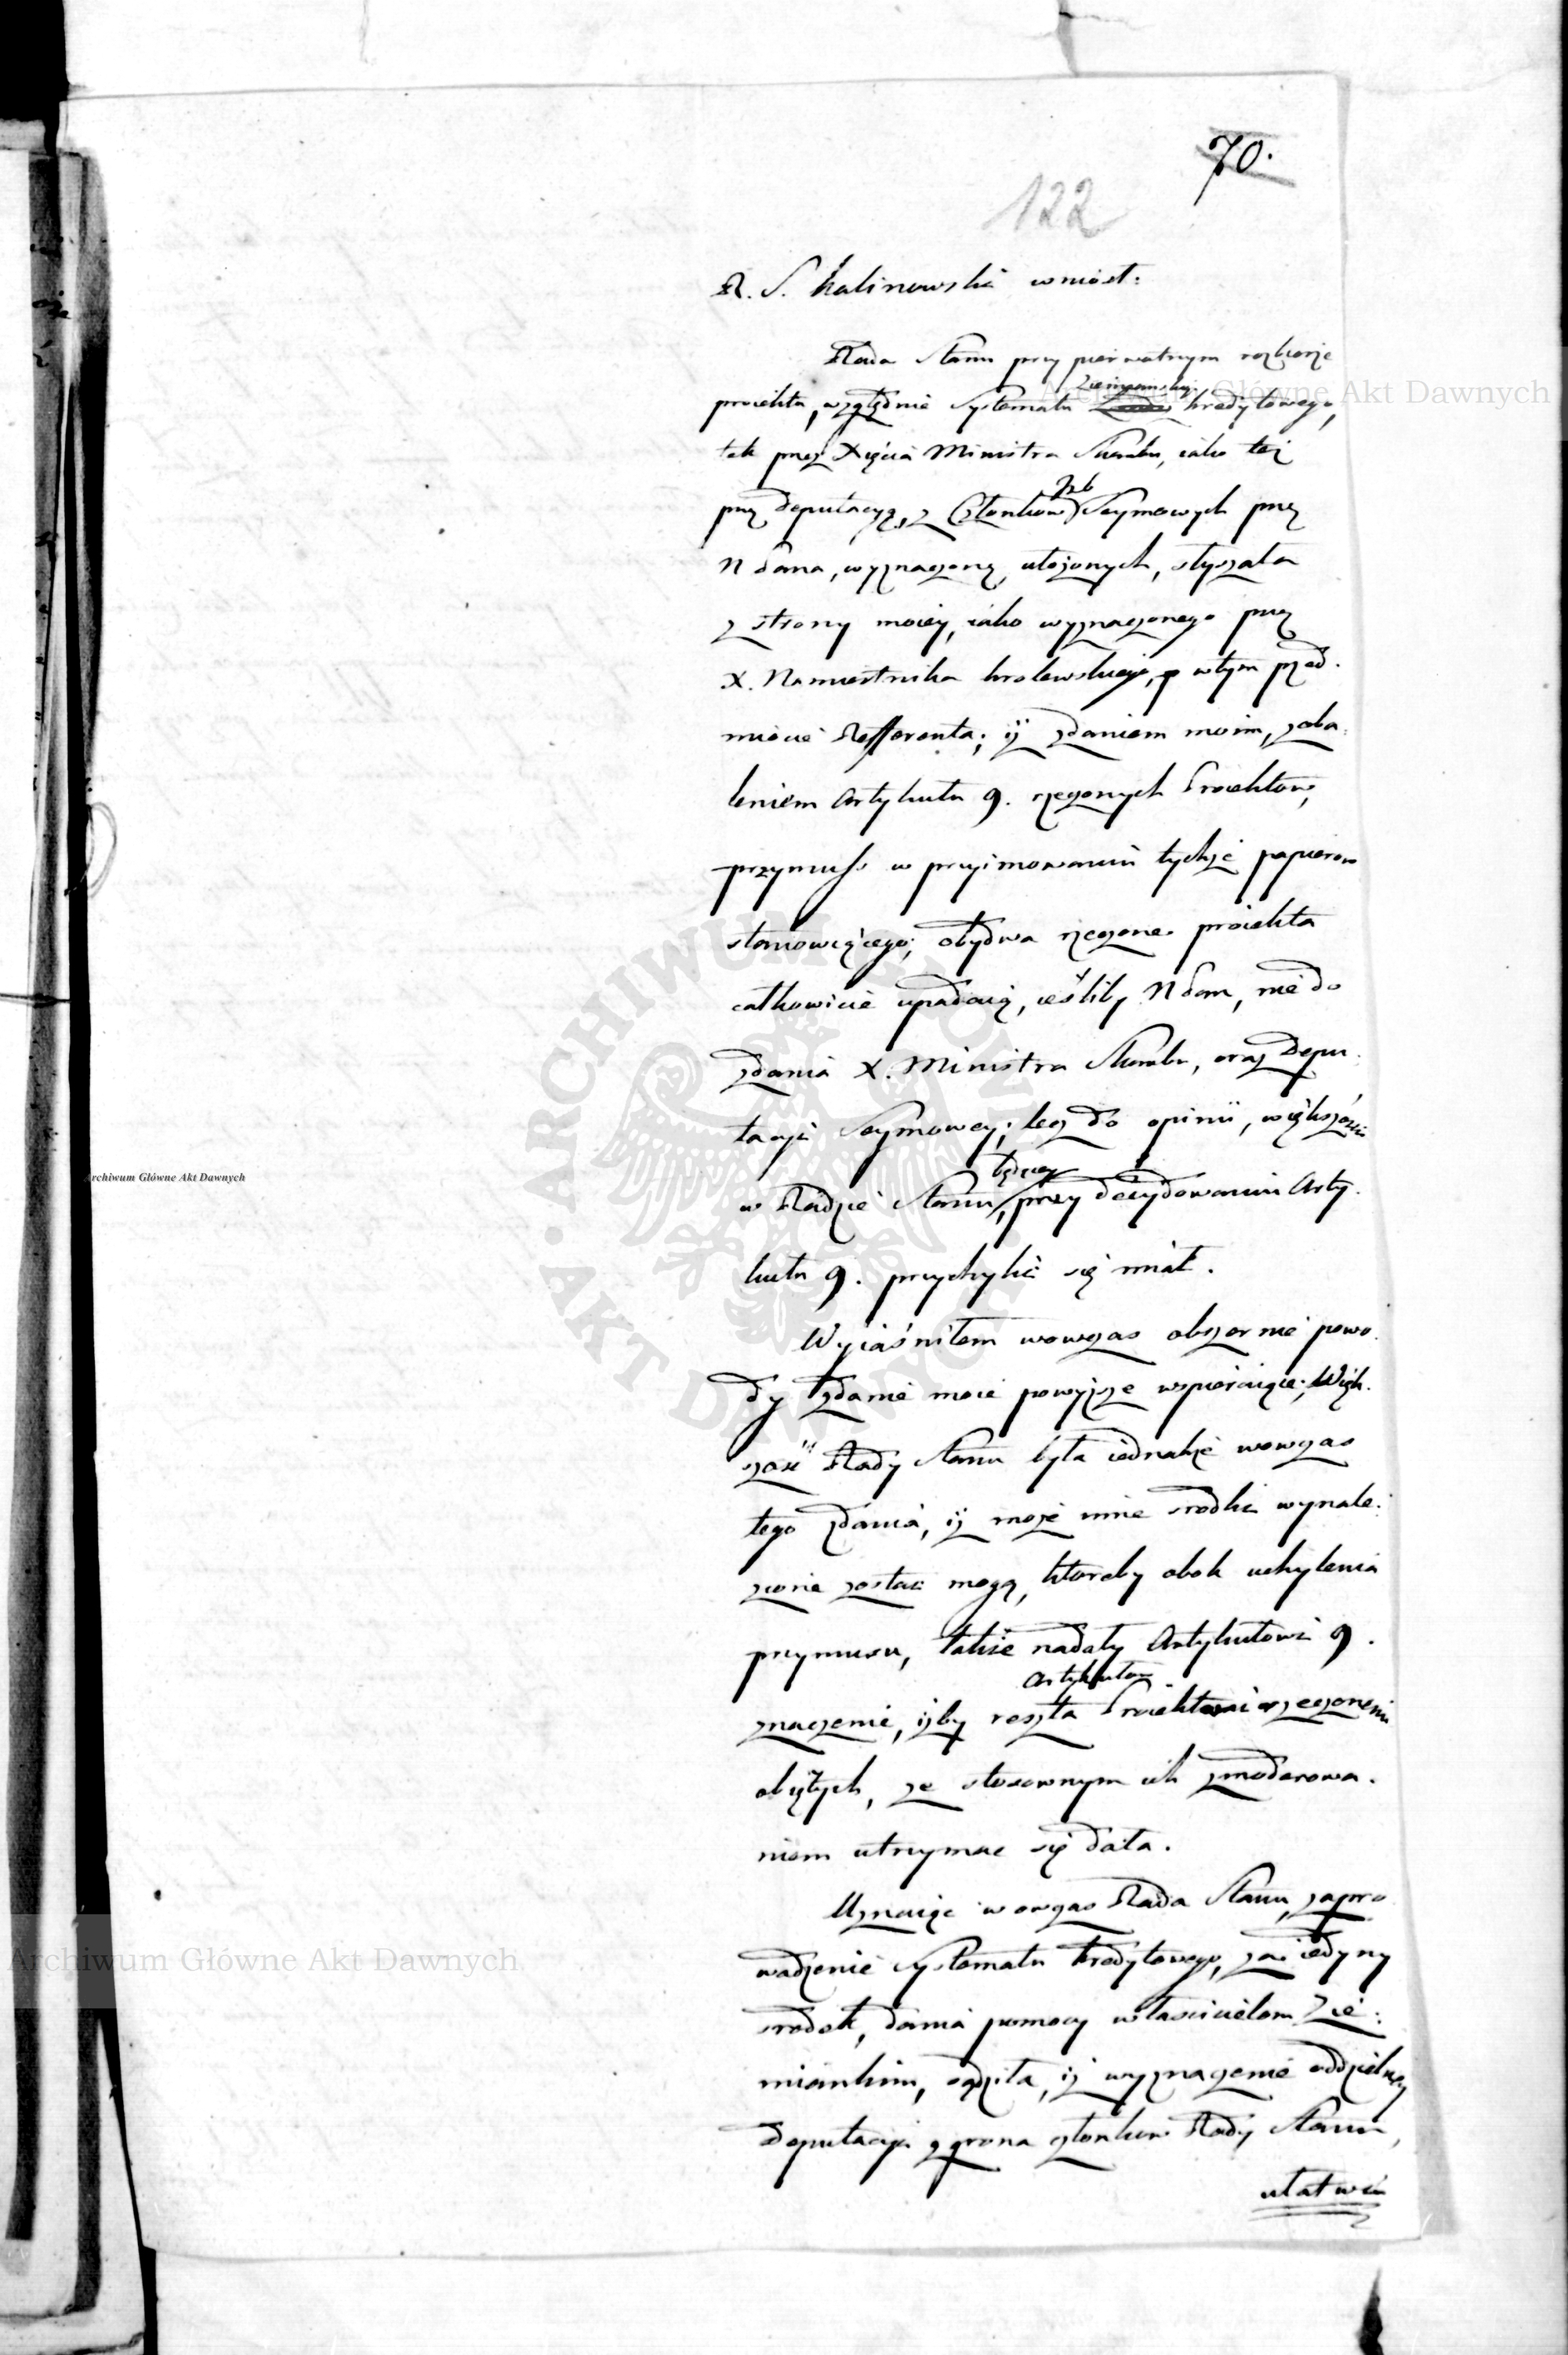 70.
122
R. S. Kalinowski wniósł:
Rada Stanu przy pierwotnym rozbiorze
proiektu, względnie Systematu Ziemianskiego kredytowego,
tak przez Xięcia Ministra Skarbu, iako też
prz deputacyą, z Członkow Izb Seymowych prz
N Pana, wyznaczoną, ułożonych, słyszała
z strony moiey, iako wyznaczonego prz
X. Namiestnika krolewskiego, w tym przed-
miocie Refferenta; iż zdaniem moim, z oba-
leniem Artykułu 9. rzeczonych Proiektow,
przymuss w przyimowaniu tychże papierow
stanowiącego; obydwa rzeczone proiekta
całkowicie upadaią, ieśliby N Pan, nie do
zdania X. Ministra Skarbu, oraz Depu-
tacyi Seymowey; lecz do opinii, większości
w Radzie Stanu, będącey przy decydowaniu Arty-
kułu 9. przychylić się miał.
Wyiaśniłem wowczas obszernie powo-
dy zdanie moie powyższe wspieraiące; Więk-
szość Rady Stanu była iednakże wowczas
tego zdania, iż może inne srodki wynale-
zione zostać mogą, ktoreby obok uchylenia
przymusu, takie nadały Artykułowi 9.
znaczenie, iżby reszta Artykułow Proiektami rzeczonemi
obiętych, ze stosownym ich zmoderowa-
niem utrzymać się dała.
Uznaiąc wowczas Rada Stanu, zapro
wadzenie Systematu kredytowego, za iedyny
srodek, dania pomocy właścicielom Zie-
miankim, sądziła, iż wyznaczenie oddzielney
deputacyi z grona członkow Rady Stanu,
ułatwi
Archiwum Główne Akt Dawnych
Archiwum Główne Akt Dawnych
Archiwum Główne Akt Dawnych
ARCHIWUM GŁÓWNE AKT DAWNYCH